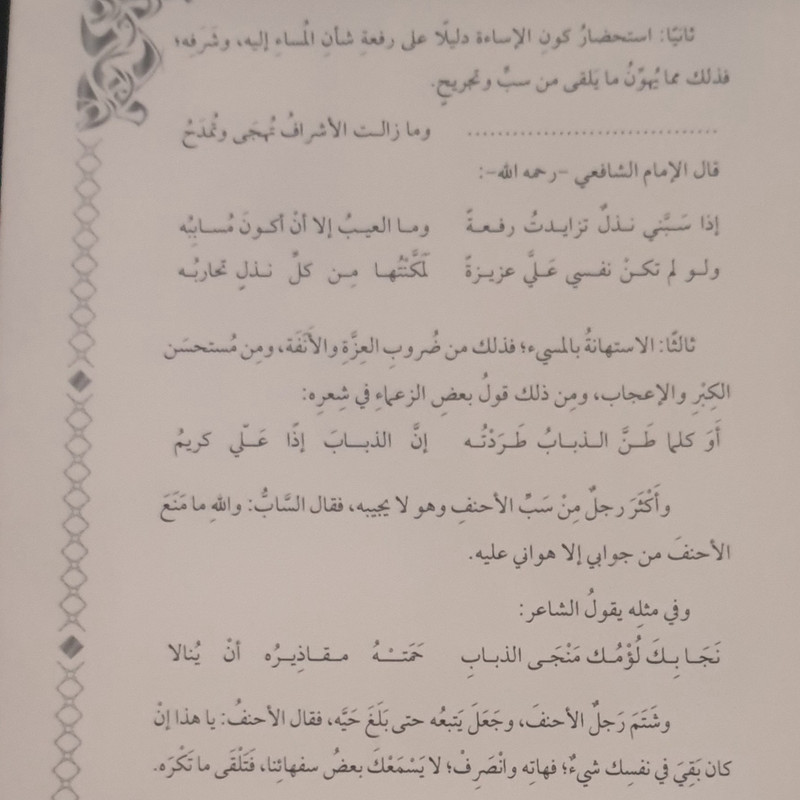 ثانيًا: استحضارُ كونِ الإساءة دليلًا على رفعةِ شأنِ المُساءِ إليه، وشَرَفِه؛
فذلك مما يُهوِّنُ ما يَلقى من سبٍّ وتجريحٍ.
................................ وما زالت الأشرافُ تُهجَى وتُمدَحُ
قال الإمام الشافعي -رحمه الله-:
إذا سَبَّني نذلٌ تزايدتُ رفعةً وما العيبُ إلا أنْ أكونَ مُساببُه
ولو لم تكنْ نفسي عَليَّ عزيزةً لَمَكَّنْتُها مِن كلِّ نذلٍ تحاربُه
ثالثًا: الاستهانةُ بالمسيء؛ فذلك من ضُروبِ العِزَّةِ والأَنَفَة، ومِن مُستحسَن
الكِبْرِ والإعجاب، ومِن ذلك قولُ بعضِ الزعماءِ في شِعرِه:
أَوَ كلما طَنَّ الذبابُ طَرَدْتُه إنَّ الذبابَ إذًا عَلّي كريمُ
وأَكْثَرَ رجلٌ مِنْ سَبِّ الأحنفِ وهو لا يجيبه، فقال السَّابُّ: واللهِ ما مَنَعَ
الأحنفَ من جوابي إلا هواني عليه.
وفي مثلِه يقولُ الشاعر:
نَجَا بِكَ لُؤْمُك مَنْجَى الذبابِ حَمَتْهُ مقاذِيرُه أنْ يُنالا
وشَتَمَ رَجلٌ الأحنفَ، وجَعَلَ يَتبعُه حتى بَلَغَ حَيَّه، فقال الأحنفُ: يا هذا إنْ
كان بَقِيَ في نفسِك شيءٌ؛ فهاتِه وانْصَرِفْ؛ لا يَسْمَعْكَ بعضُ سفهائِنا، فَتَلْقَى ما تَكْرَه.